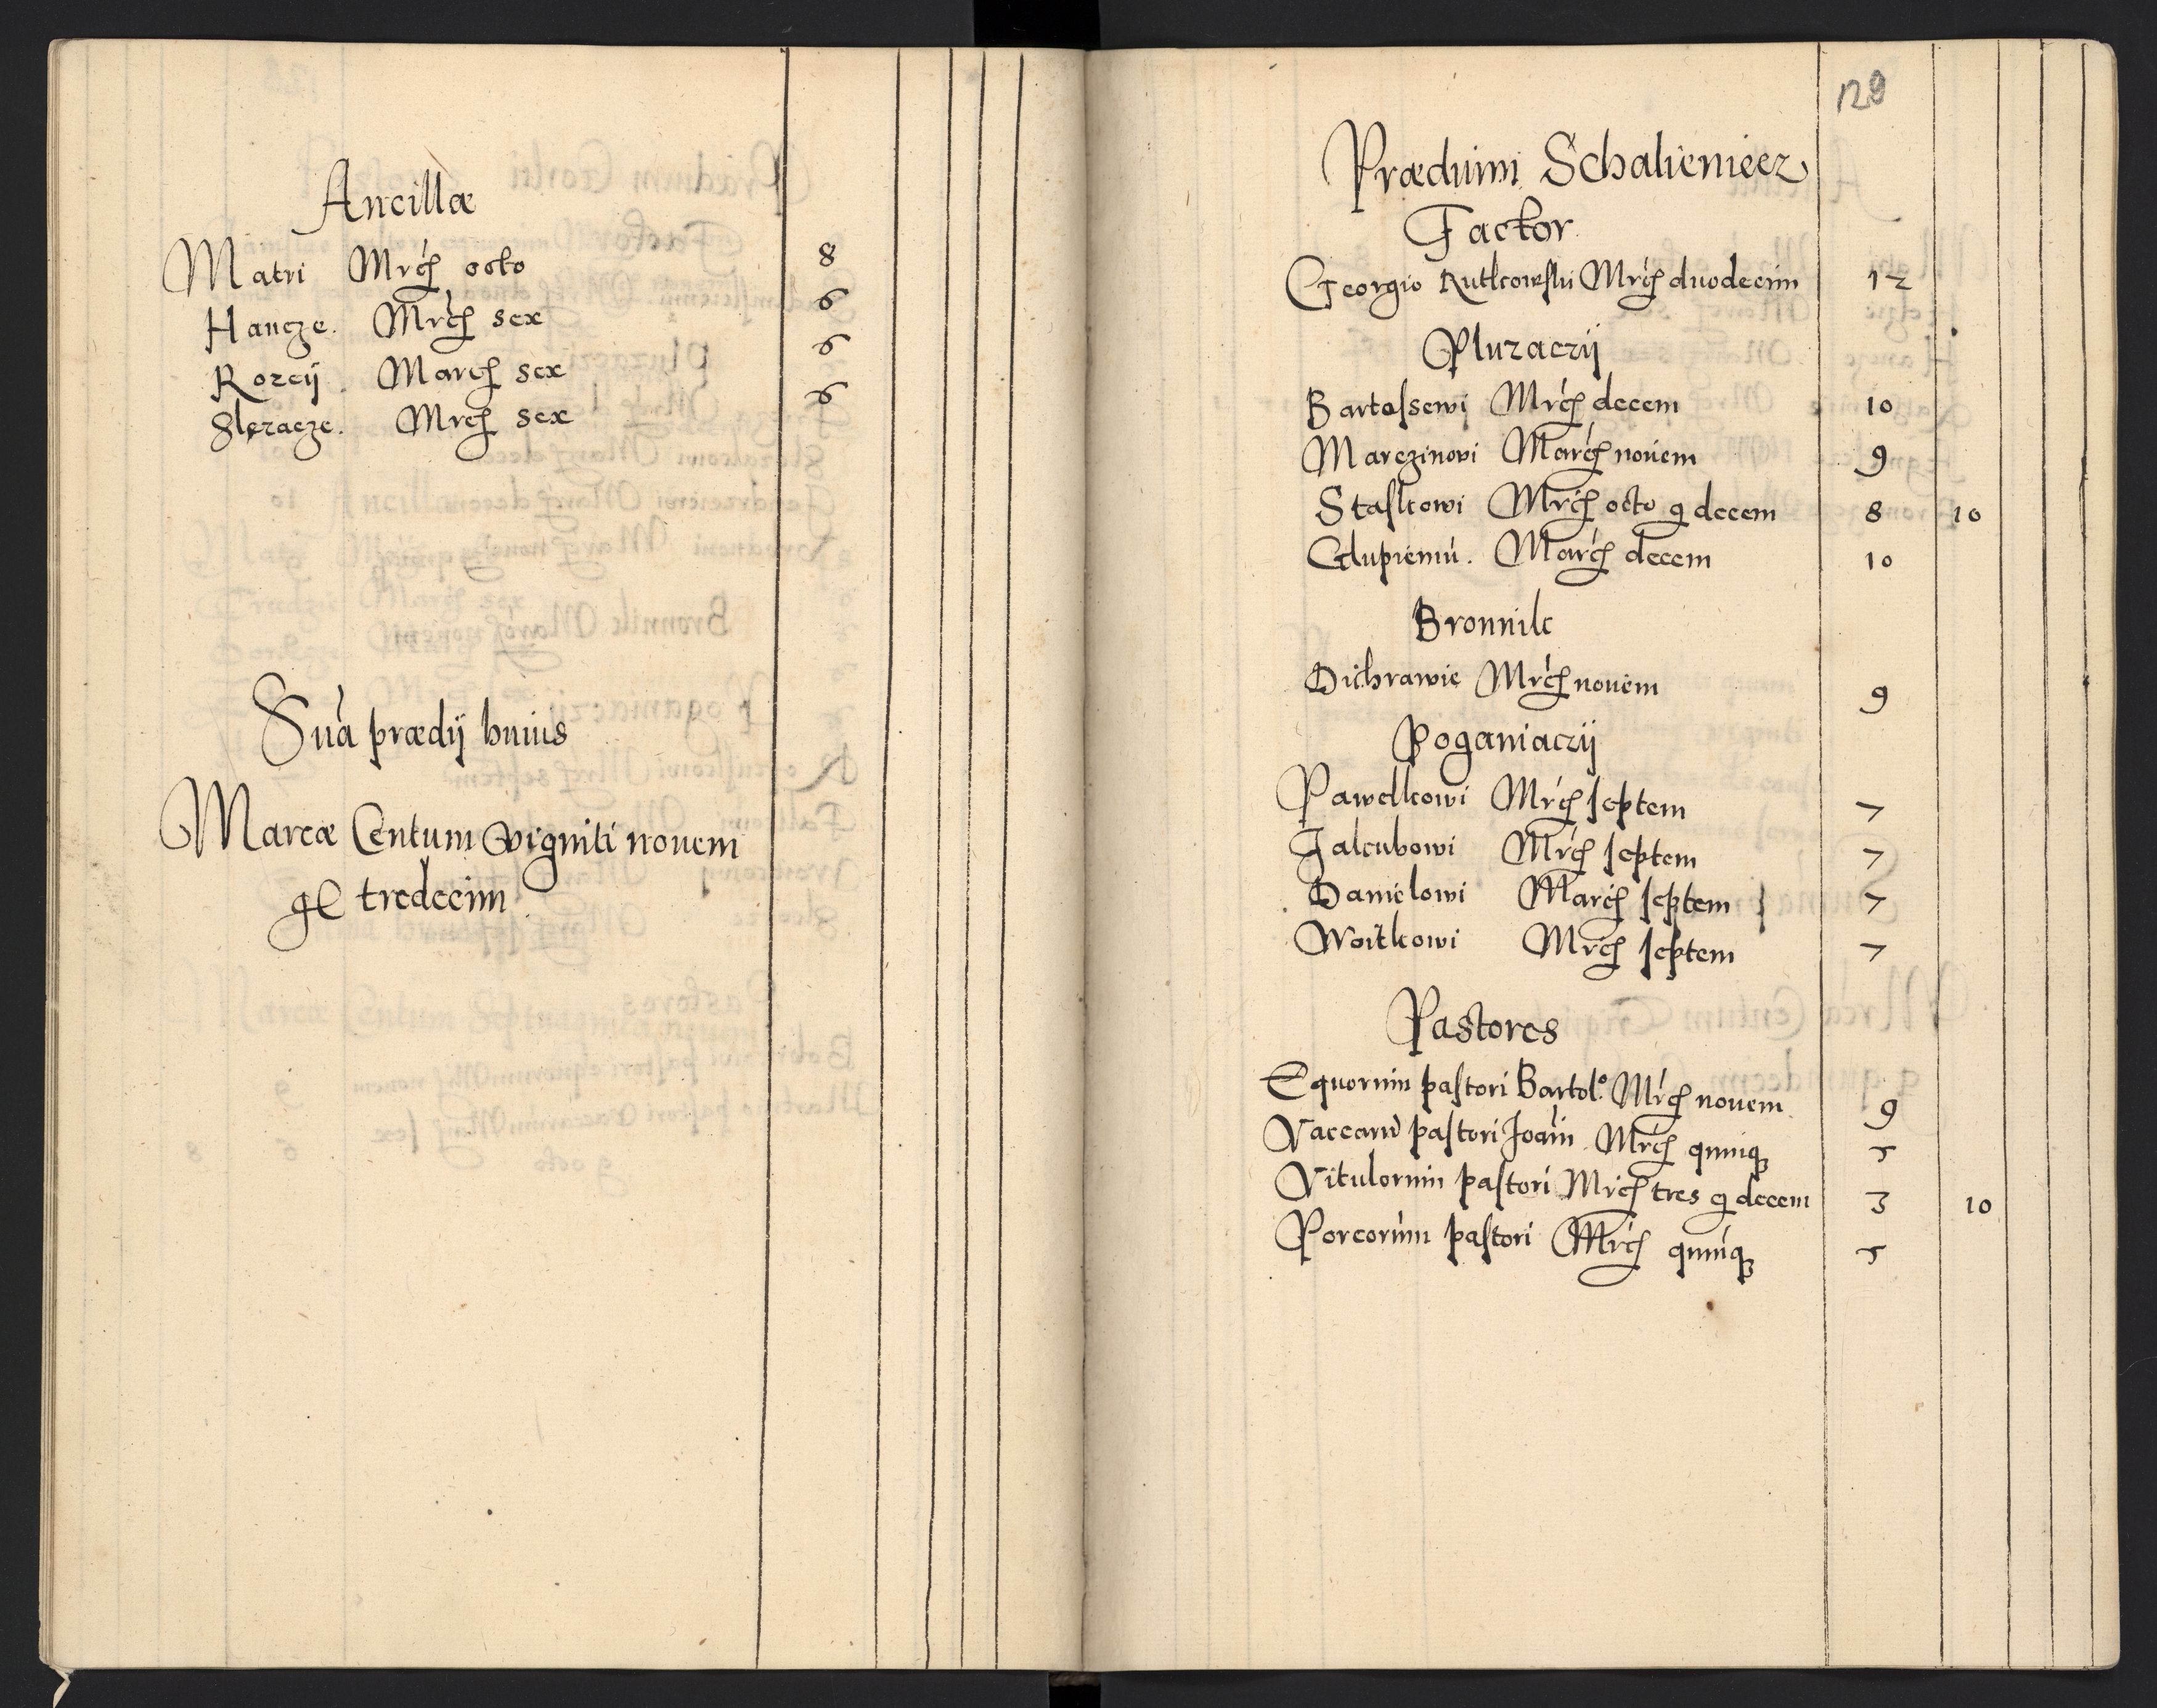 Ancillæ
Matri Mrcɧ octo 8
Hancze. Mrcɧ sex 6
Rozcÿ. Marcɧ sex 6
Slezacze. Mrcɧ sex 6
Sua prædij huius
Marcæ Centum vigniti nouem
gl tredecim
129
Prædium Schalieniecz
Factor
Georgio Rutkowski Mrcɧ duodecim 12
Pluzaczÿ
Bartossewi Mrcɧ decem 10
Marczinowi Marcɧ nouem 9
Staskowi Mrcɧ octo g decem 8 10
Glupiemu. Marcɧ decem 10
Bronnik
Dichrawie Mrcɧ nouem 9
Poganiaczÿ
Pawelkowi Mrcɧ septem 7
Jakubowi Mrcɧ septem 7
Danielowi Marcɧ septem 7
Woitkowi Mrcɧ septem 7
Pastores
Equorum pastori Bartol.º Mrcɧ nouem 9
Vaccarũ pastori Joañ. Mrcɧ quinqꝫ 5
Vitulorum pastori Mrcɧ tres g decem 3 10
Porcorum pastori Mrcɧ quinqꝫ 5